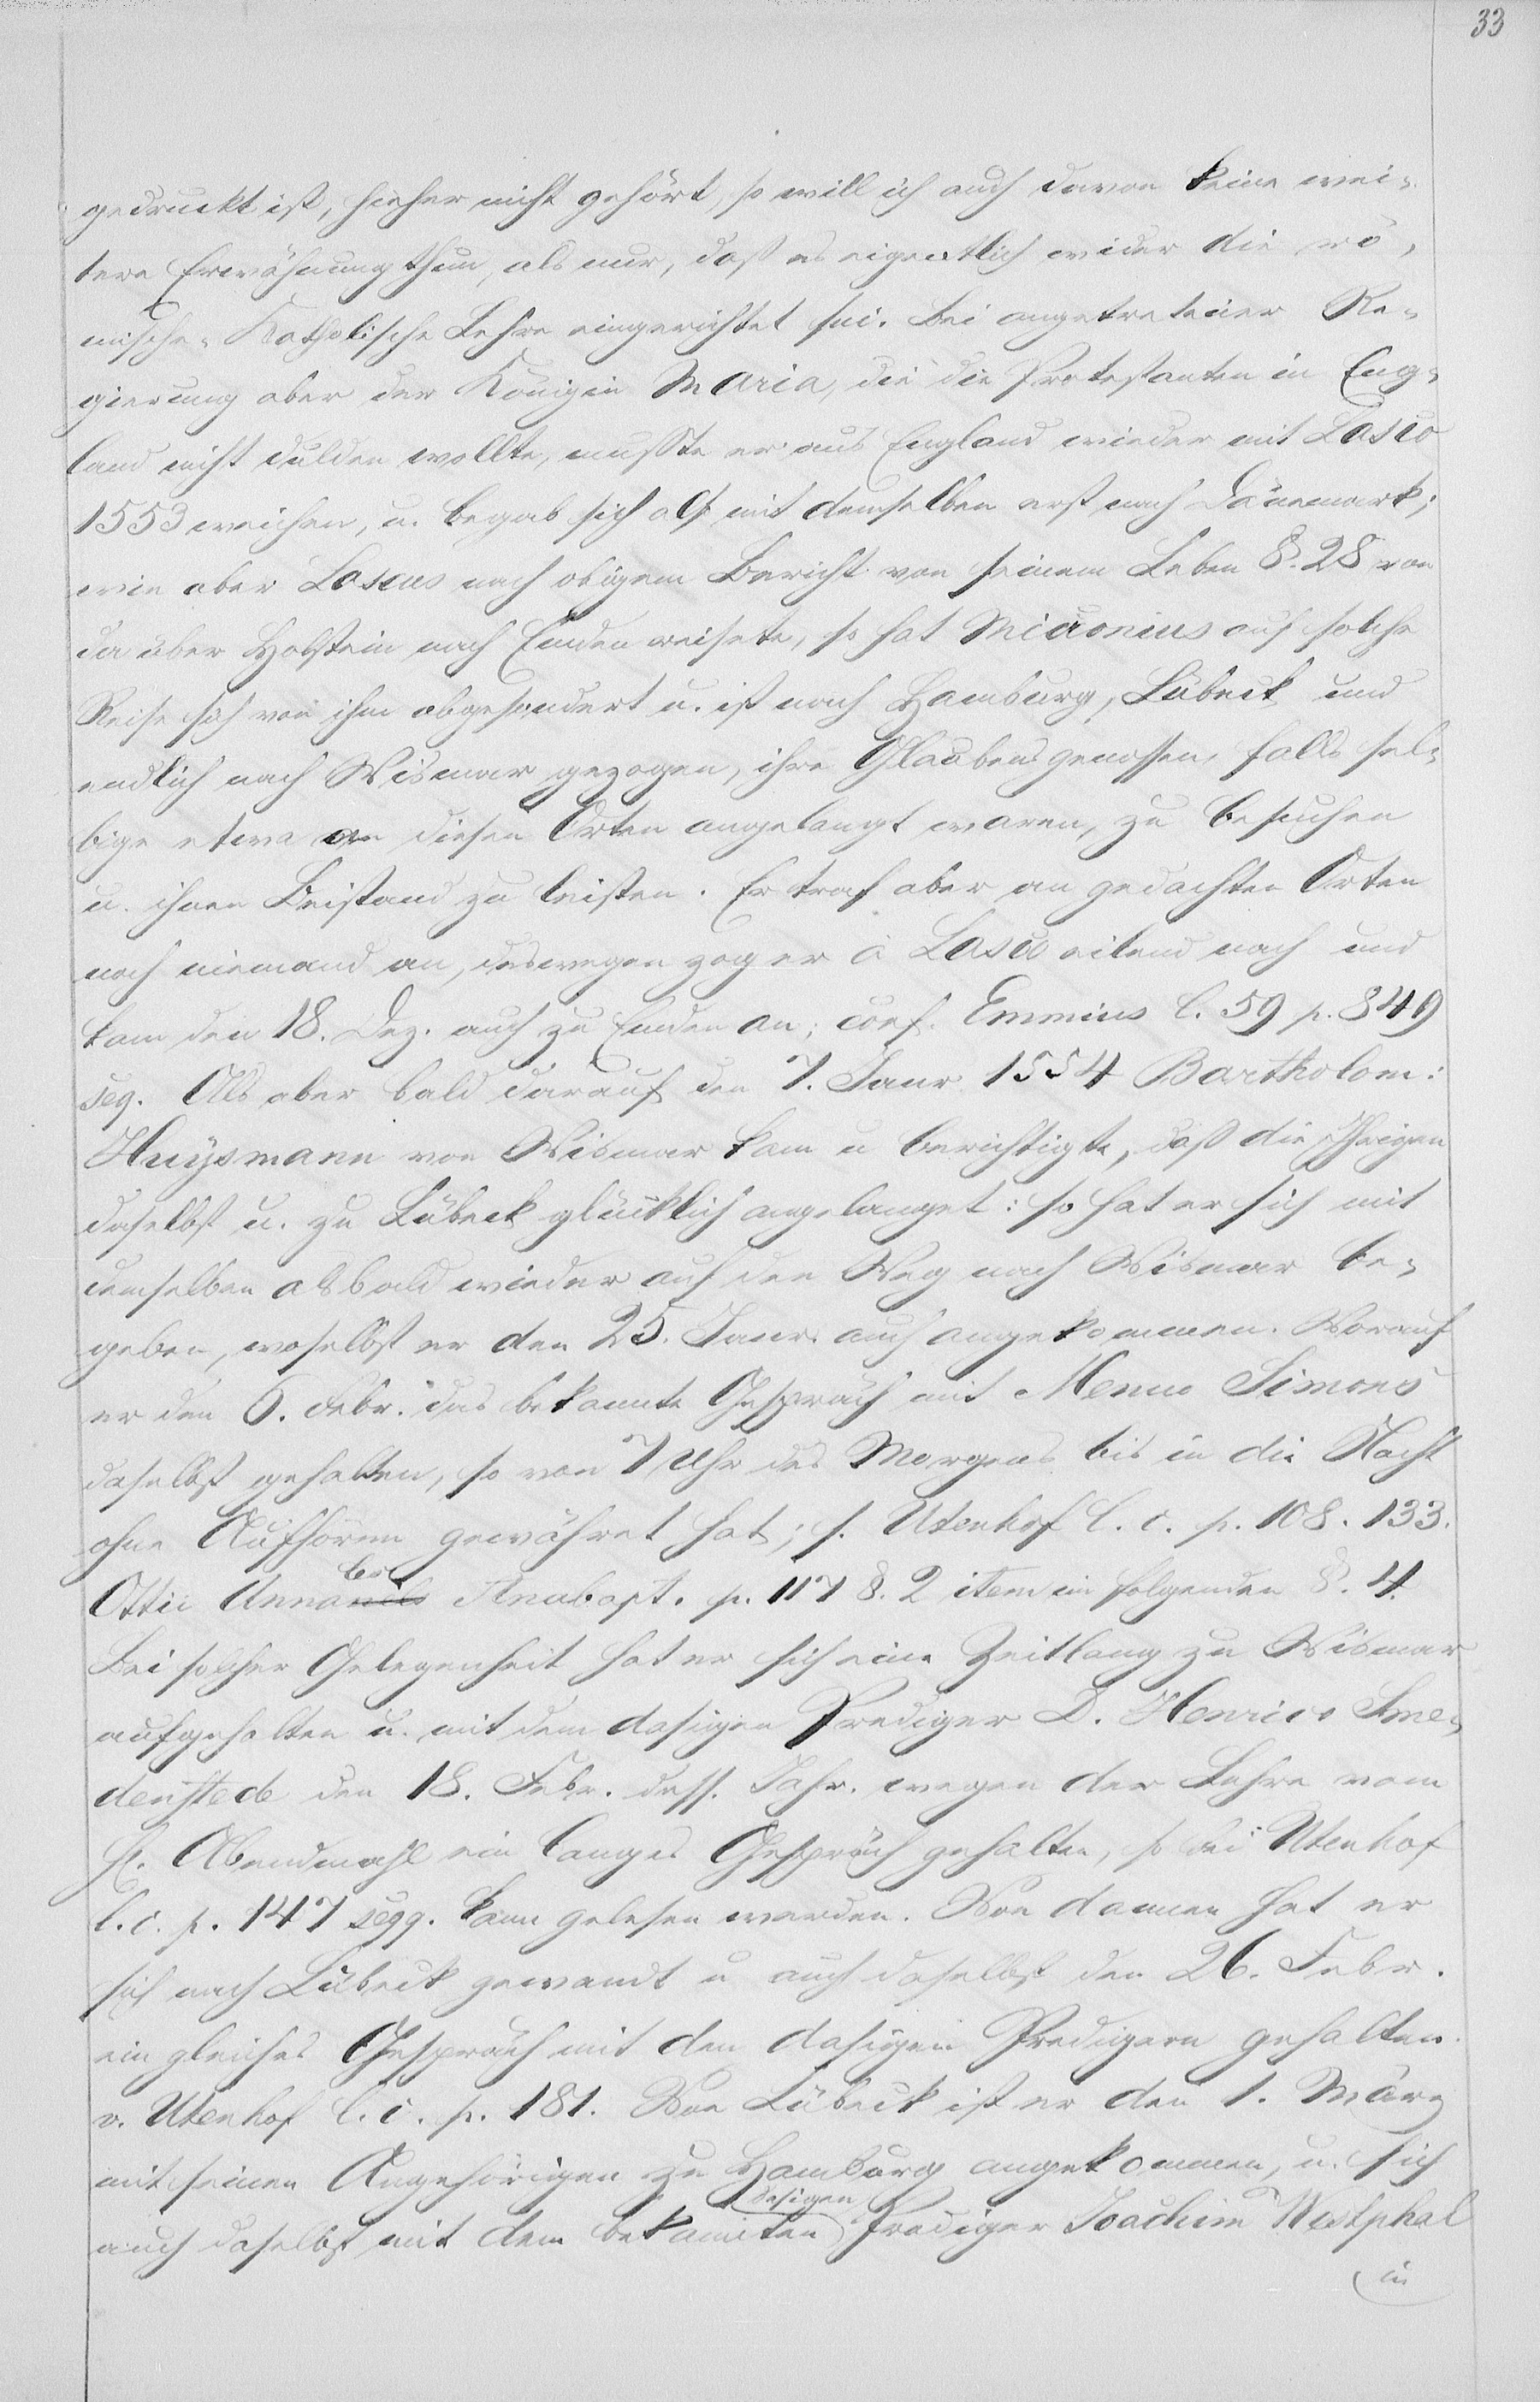 33
gedruckt ist, hieher nicht gehört, so will ich auch davon keine wei-
tere Erwähnung thun, als nur, daß es eigentlich wider die rö-
mische-Katholische Lehre eingerichtet sei. Bei angetretener Re-
gierung aber der Königin Maria, die die Protestanten in Eng-
land nicht dulden wollte, mußte er aus England wieder mit Lasco
1553 weichen, u. begab sich also mit demselben erst nach Dänemark;
wie aber Lascus nach obigem Bericht von seinem Leben §. 28 von
da über Holstein nach Emden reisete, so hat Micronius auf solche
Reise sich von ihm abgesondert u. ist nach Hamburg, Lübeck und
endlich nach Wismar gezogen, ihre Glaubensgenossen, falls sel-
bige etwa an diesen Orten angelangt waren, zu besuchen
u. ihnen Beistand zu leisten. Er traf aber an gedachten Orten
noch niemand an, deswegen zog er à Lasco eilend nach und
kam den 18. Dez. auch zu Emden an; conf. Emmius l. 59 p. 849
seq. Als aber bald darauf den 7. Janr. 1554 Bartholom:
Huysmann von Wismar kam u berichtigte, daß die Ihrigen
daselbst u. zu Lübeck glücklich angelanget: so hat er sich mit
demselben alsbald wieder auf den Weg nach Wismar be-
geben, woselbst er den 25. Janr. auch angekommen. Worauf
er den 6. Febr. das bekannte Gespräch mit Menno Simons
daselbst gehalten, so von 7 Uhr des Morgens bis in die Nacht
ohne Aufhören gewähret hat; s. Utenhof l. c. p. 108. 133.
Ottii Annales Anabapt. p. 117 §. 2 item im folgenden §. 4.
Bei solcher Gelegenheit hat er sich eine Zeitlang zu Wismar
aufgehalten u. mit dem dasigen Prediger D. Henrico Sme-
denstede den 18. Febr. dess. Jahr. wegen der Lehre vom
H. Abendmahl ein langes Gespräch gehalten, so bei Utenhof
l. c. p. 147 seqq. kann gelesen werden. Von dannen hat er
sich nach Lübeck gewandt u auch daselbst den 26. Febr.
ein gleiches Gespräch mit den dasigen Predigern gehalten.
v. Utenhof l. c. p. 181. Von Lübeck ist er den 1. März
mit seinen Angehörigen zu Hamburg angekommen, u. sich
auch daselbst mit dem bekannten dasigen Prediger Joachim Westphal
in